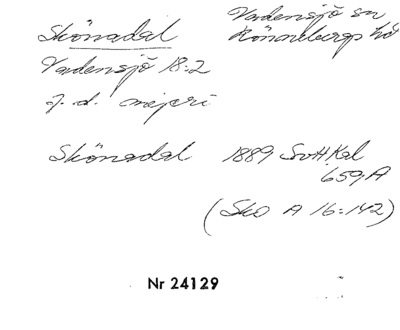 Skönadal
Vadensjö sn
Rönnebergs hd
Vadensjö 18:2
f. d. mejeri
Skönadal 1889 SvHKal
659,A
(Sko A 16:142)
Nr 24129